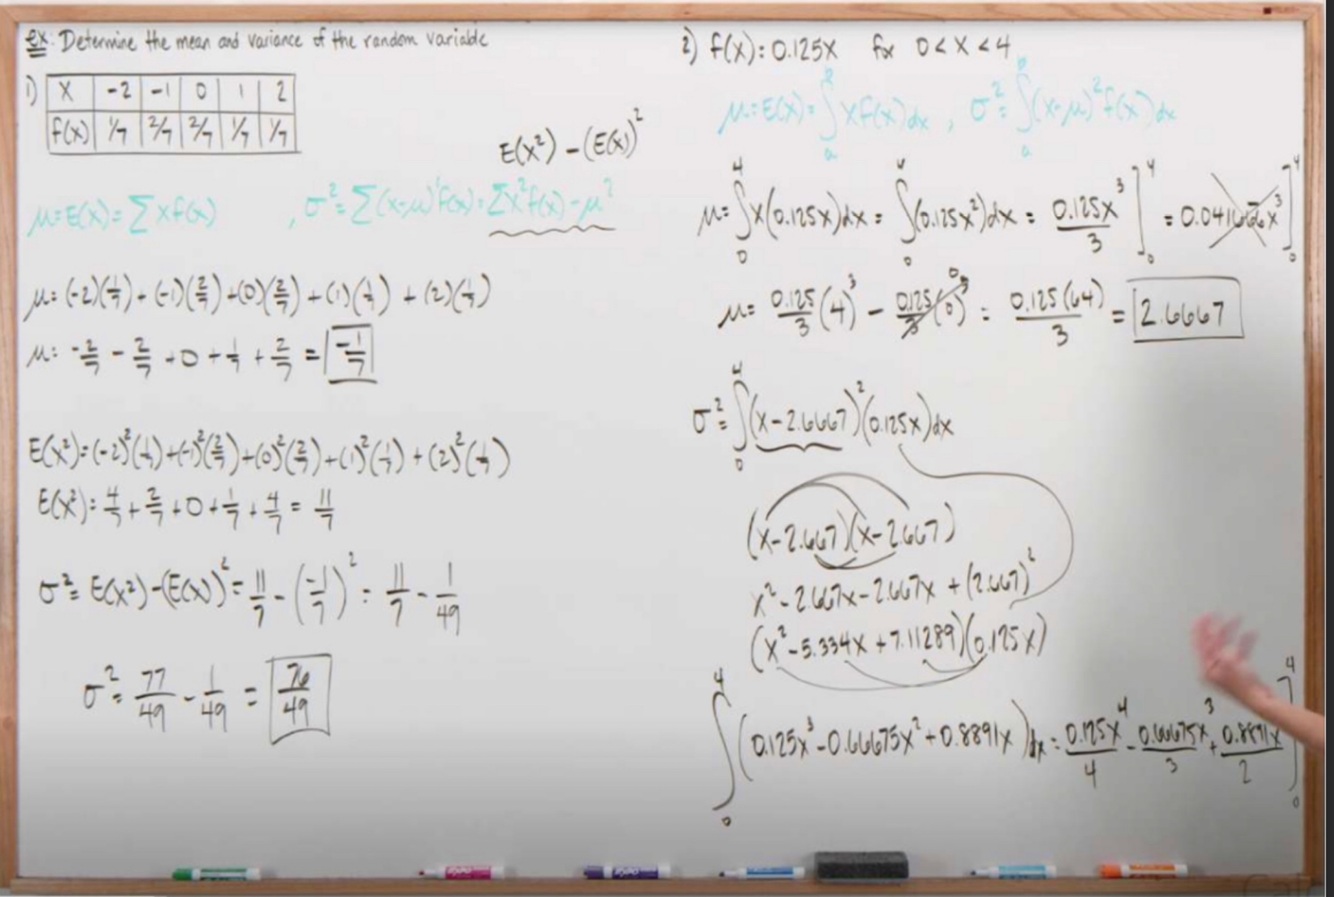 ex: Determine the mean and variance of the random variable
1) X -2 -1 0 1 2
f(x) 1/7 2/7 2/7 1/7 1/7
E(x²) - (E(x))²
μ=E(x)= ∑xf(x) , σ²= ∑(x-μ)²f(x) = ∑x²f(x) - μ²
μ= (-2)(1/7) + (-1)(2/7) + (0)(2/7) + (1)(1/7) + (2)(1/7)
μ= -2/7 - 2/7 + 0 + 1/7 + 2/7 = -1/7
E(x²)= (-2)²(1/7) + (-1)²(2/7) + (0)²(2/7) + (1)²(1/7) + (2)²(1/7)
E(x²)= 4/7 + 2/7 + 0 + 1/7 + 4/7 = 11/7
σ²= E(x²) - (E(x))² = 11/7 - (-1/7)² = 11/7 - 1/49
σ²= 77/49 - 1/49 = 76/49
2) f(x)= 0.125x for 0 < x < 4
μ=E(x)= ∫ₐᵇ xf(x)dx , σ²= ∫ₐᵇ (x-μ)²f(x)dx
μ= ∫₀⁴ x(0.125x)dx = ∫₀⁴ (0.125x²)dx = 0.125x³/3 ]₀⁴ = 0.041666x³ ]₀⁴
μ= 0.125/3 (4)³ - 0.125/3 (0)³ 0 = 0.125(64)/3 = 2.6667
σ²= ∫₀⁴ (x-2.6667)²(0.125x)dx
(x-2.667)(x-2.667)
x² - 2.667x - 2.667x + (2.667)²
(x² - 5.334x + 7.11289)(0.125x)
∫₀⁴ (0.125x³ - 0.66675x² + 0.8891x)dx = 0.125x⁴/4 - 0.66675x³/3 + 0.8891x/2 ]₀⁴